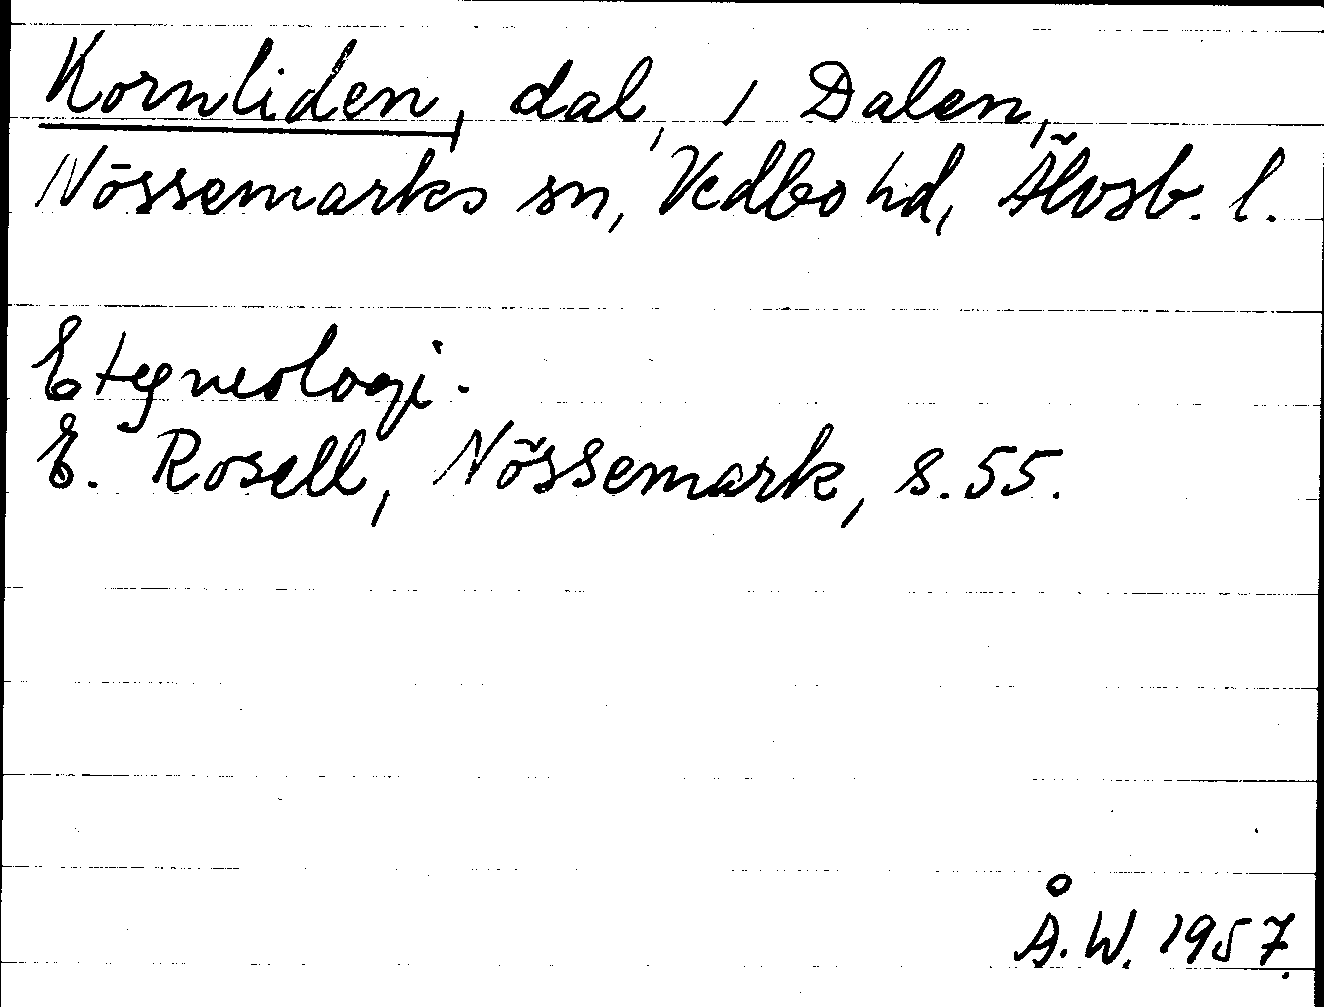 Kornliden, dal, 1 Dalen,
Nössemarks sn, Vedbo hd, Älvsb. l.
Etymologi.
E. Rosell, Nössemark, s. 55.
Å.W. 1957.